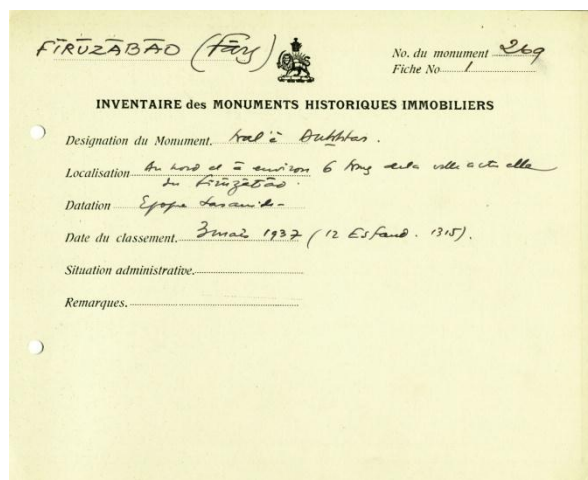 FĪRŪZĀBĀD (Fārs)
No. du monument 269
Fiche No 1
INVENTAIRE des MONUMENTS HISTORIQUES IMMOBILIERS
Designation du Monument. Kal'è Dukhtar.
Localisation Au nord et à environ 6 kms de la ville actuelle
de Fīrūzābād.
Datation Epoque Sasanide
Date du classement. 3 mars 1937 (12 Esfand. 1315).
Situation administrative.
Remarques.